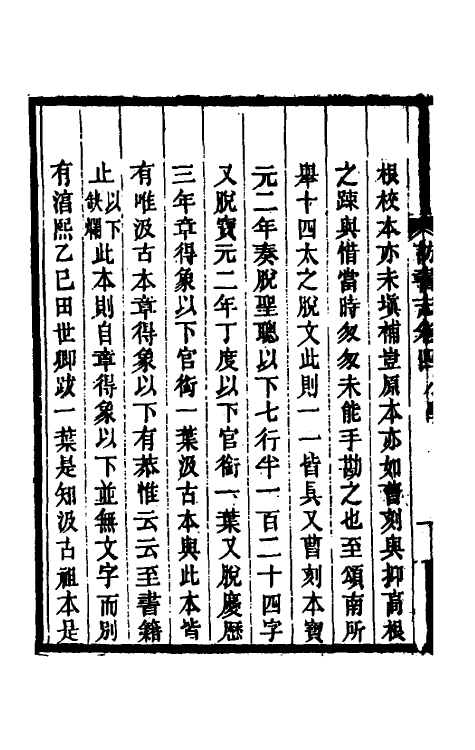 訪書志卷四
根校本亦未塡補豈原本亦如曹刻與抑高根
之踈與惜當時匆匆未能手勘之也至頌南所
舉十四太之脫文此則一一皆具又曹刻本寶
元二年奏脫聖聰以下七行半一百二十四字
又脫寶元二年丁度以下官銜一葉又脫慶歷
三年章得象以下官銜一葉汲古本與此本皆
有唯汲古本章得象以下有恭惟云云至書籍
止以下缺爛此本則自章得象以下並無文字而別
有淯熙乙巳田世卿跋一葉是知汲古祖本是